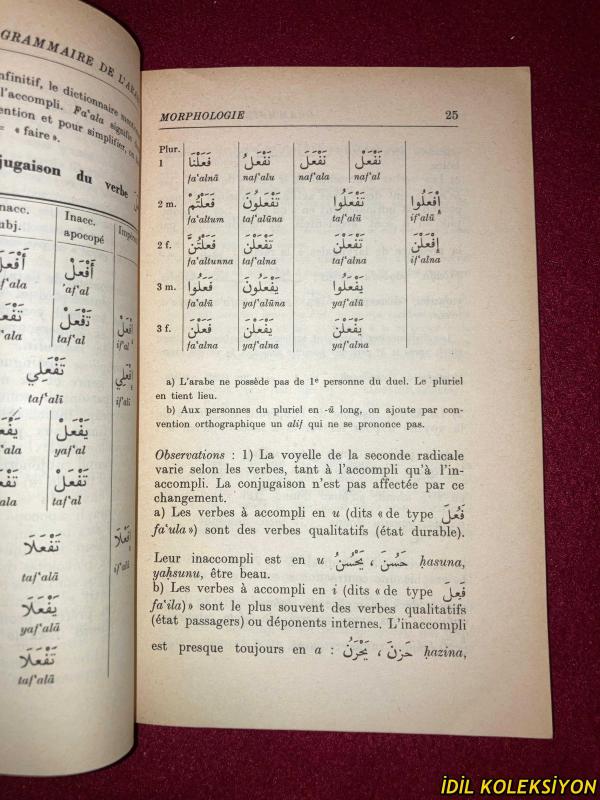 GRAMMAIRE DE L'ARA
nfinitif, le dictionnaire
l'accompli. Fa'ala signifie
ention et pour simplifier,
= « faire ».
jugaison du verbe
Inacc. Inacc. Impér
ubj. apocopé
أَفْعَلَ أَفْعَلْ
f'ala 'af'al
تَفْعَلْ اِفْعَلْ
f'ala taf'al if'al
تَفْعَلِي
taf'alī if'alī
يَفْعَلْ
f'ala yaf'al
تَفْعَلْ
ala taf'al
تَفْعَلَا
taf'alā if'alā
يَفْعَلَا
yaf'alā
تَفْعَلَا
taf'alā
MORPHOLOGIE 25
Plur.
1 فَعَلْنَا نَفْعَلُ نَفْعَلَ نَفْعَلْ
fa'alnā naf'alu naf'ala naf'al
2 m. فَعَلْتُمْ تَفْعَلُونَ تَفْعَلُوا إِفْعَلُوا
fa'altum taf'alūna taf'alū if'alū
2 f. فَعَلْتُنَّ تَفْعَلْنَ تَفْعَلْنَ إِفْعَلْنَ
fa'altunna taf'alna taf'alna if'alna
3 m. فَعَلُوا يَفْعَلُونَ يَفْعَلُوا
fa'alū yaf'alūna yaf'alū
3 f. فَعَلْنَ يَفْعَلْنَ يَفْعَلْنَ
fa'alna yaf'alna yaf'alna
a) L'arabe ne possède pas de 1e personne du duel. Le pluriel
en tient lieu.
b) Aux personnes du pluriel en -ū long, on ajoute par con-
vention orthographique un alif qui ne se prononce pas.
Observations : 1) La voyelle de la seconde radicale
varie selon les verbes, tant à l'accompli qu'à l'in-
accompli. La conjugaison n'est pas affectée par ce
changement.
a) Les verbes à accompli en u (dits « de type فَعُلَ
fa'ula ») sont des verbes qualitatifs (état durable).
Leur inaccompli est en u حَسُنَ ، يَحْسُنُ ḥasuna,
yaḥsunu, être beau.
b) Les verbes à accompli en i (dits « de type فَعِلَ
fa'ila) » sont le plus souvent des verbes qualitatifs
(état passagers) ou déponents internes. L'inaccompli
est presque toujours en a : حَزِنَ ، يَحْزَنُ ḥazina,
İDİL KOLEKSİYON